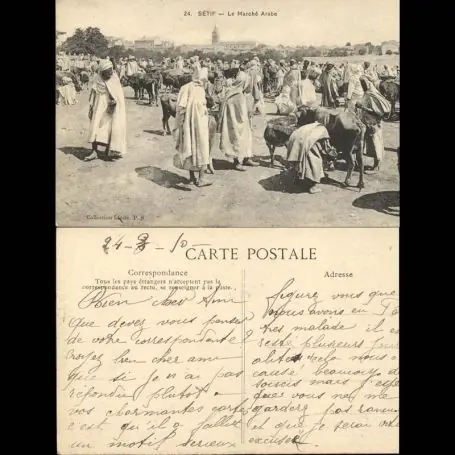 24. SÉTIF — Le Marché Arabe
Collection Idéale P. S
24-3-10-
CARTE POSTALE
Correspondance
Tous les pays étrangers n'acceptent pas la
correspondance au recto, se renseigner à la poste.
Adresse
Bien cher Ami
Que devez vous penser
de votre correspondante
croyez bien cher ami
que si je n'ai pas
répondu plutot a
vos charmantes cartes
c'est qu'il a fallut
un motif serieux
figurez vous que
nous avons eu
tres malade il est
resté plusieurs
alité cela nous a
causé beaucoup de
soucis mais j'espère
que vous ne me
garderez pas rancune
et que je serai
excusée